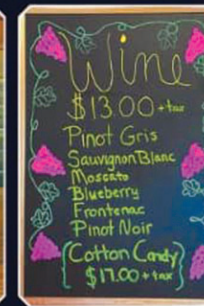 Wine
$13.00 + tax
Pinot Gris
Sauvignon Blanc
Moscato
Blueberry
Frontenac
Pinot Noir
{Cotton Candy}
$17.00 + tax